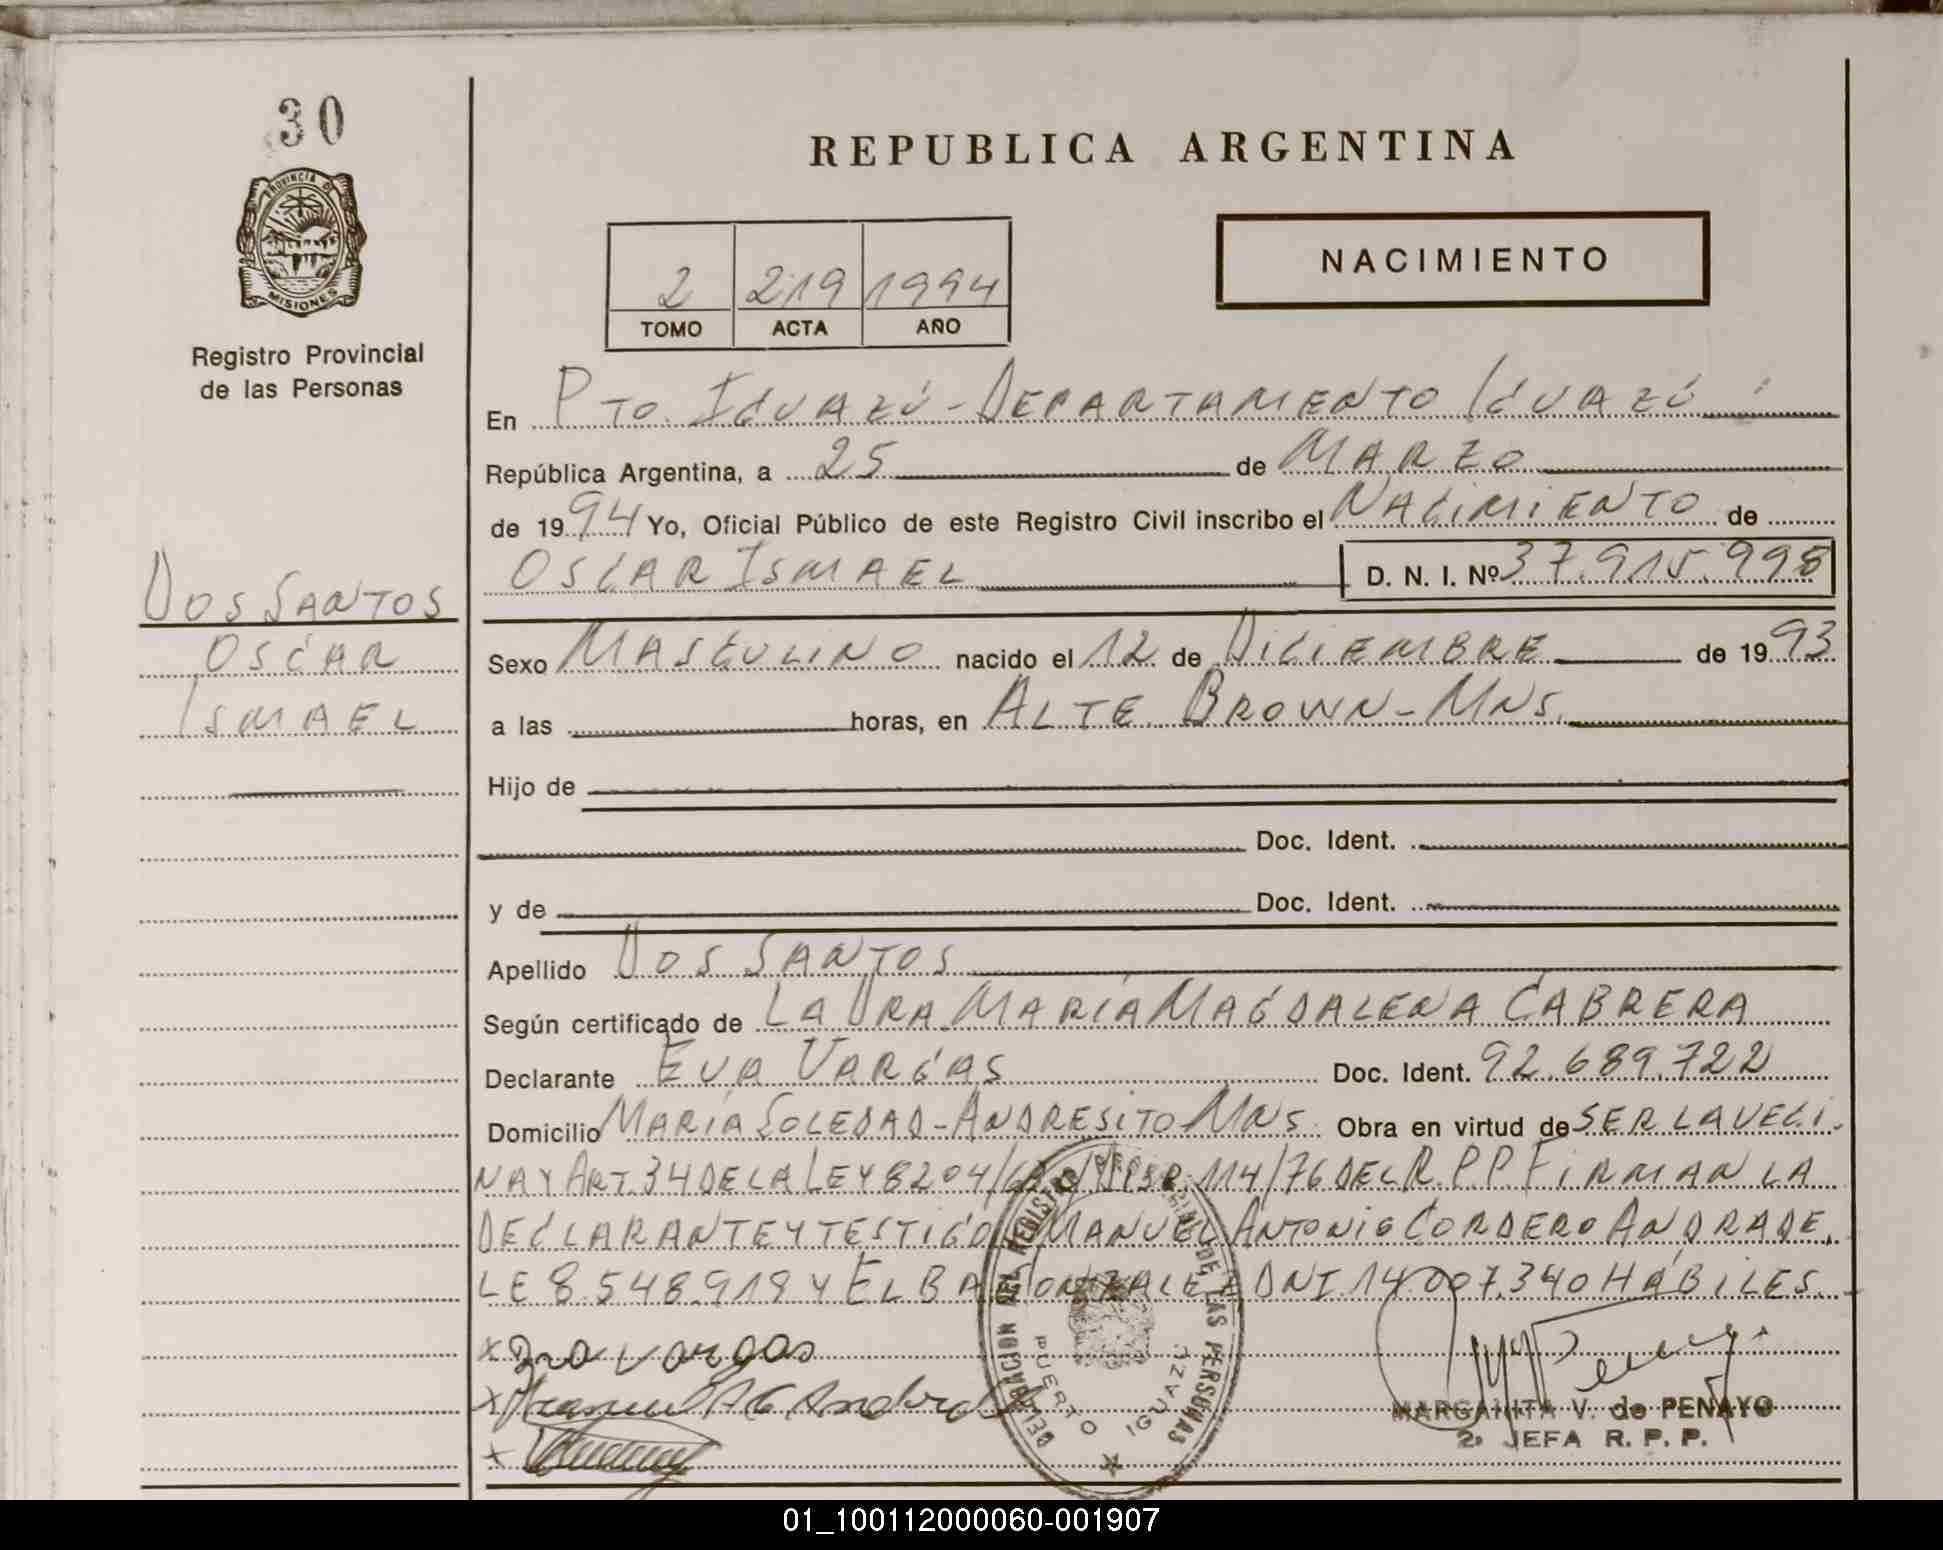 30
PROVINCIA DE
MISIONES
Registro Provincial
de las Personas
REPUBLICA ARGENTINA
2 219 1994
TOMO ACTA AÑO
NACIMIENTO
En PTO. IGUAZÚ - DEPARTAMENTO IGUAZÚ
República Argentina, a 25 de MARZO
de 1994 Yo, Oficial Público de este Registro Civil inscribo el NACIMIENTO de
OSCAR ISMAEL D. N. I. Nº 37.915.998
DOS SANTOS
OSCAR
ISMAEL
Sexo MASCULINO nacido el 12 de DICIEMBRE de 1993
a las horas, en ALTE BROWN - MNS.
Hijo de
Doc. Ident.
y de Doc. Ident.
Apellido DOS SANTOS
Según certificado de LA DRA MARÍA MAGDALENA CABRERA
Declarante EVA VARGAS Doc. Ident. 92.689.722
Domicilio MARÍA SOLEDAD - ANDRESITO MNS. Obra en virtud de SER LA VECI-
NA Y ART. 34 DE LA LEY 8204/63 Y DISP. 114/76 DEL R.P.P. FIRMAN LA
DECLARANTE Y TESTIGO MANUEL ANTONIO CORDERO ANDRADE,
LE 8.548.919 Y ELBA GONZALEZ DNI 14.007.340 HÁBILES.
x Eva vargas
x Manuel A C Andrade
x
DELEGACION DEL REGISTRO PROVINCIAL DE LAS PERSONAS
PUERTO IGUAZU
MARGARITA V. de PENAYO
2ª JEFA R. P. P.
01_100112000060-001907